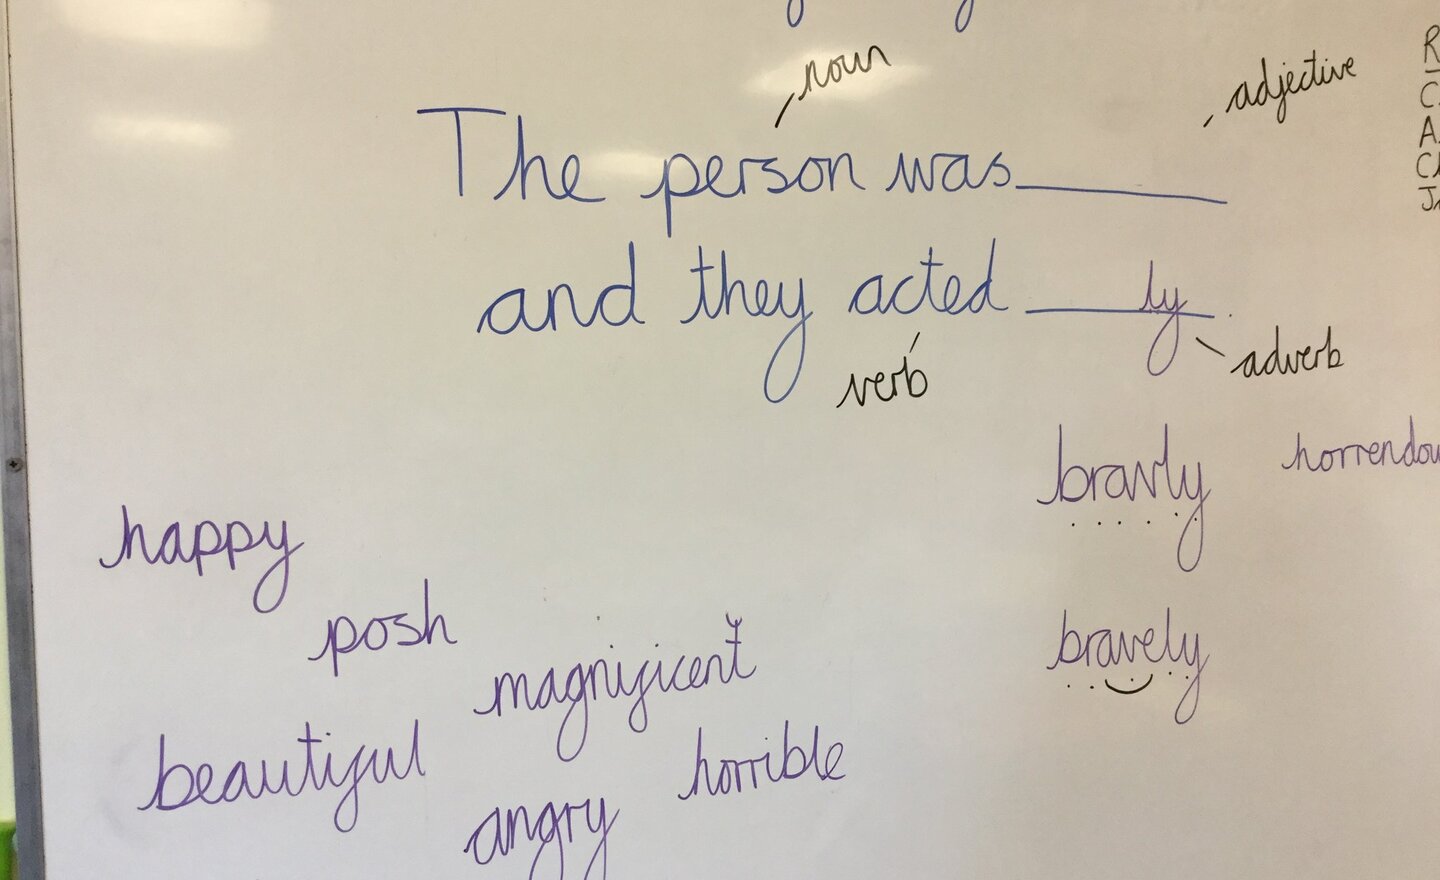 noun
adjective
The person was
and they acted ly
verb
adverb
bravly
horrendou
happy
posh
bravely
magnificent
beautiful
horrible
angry
R
C
A
C
J